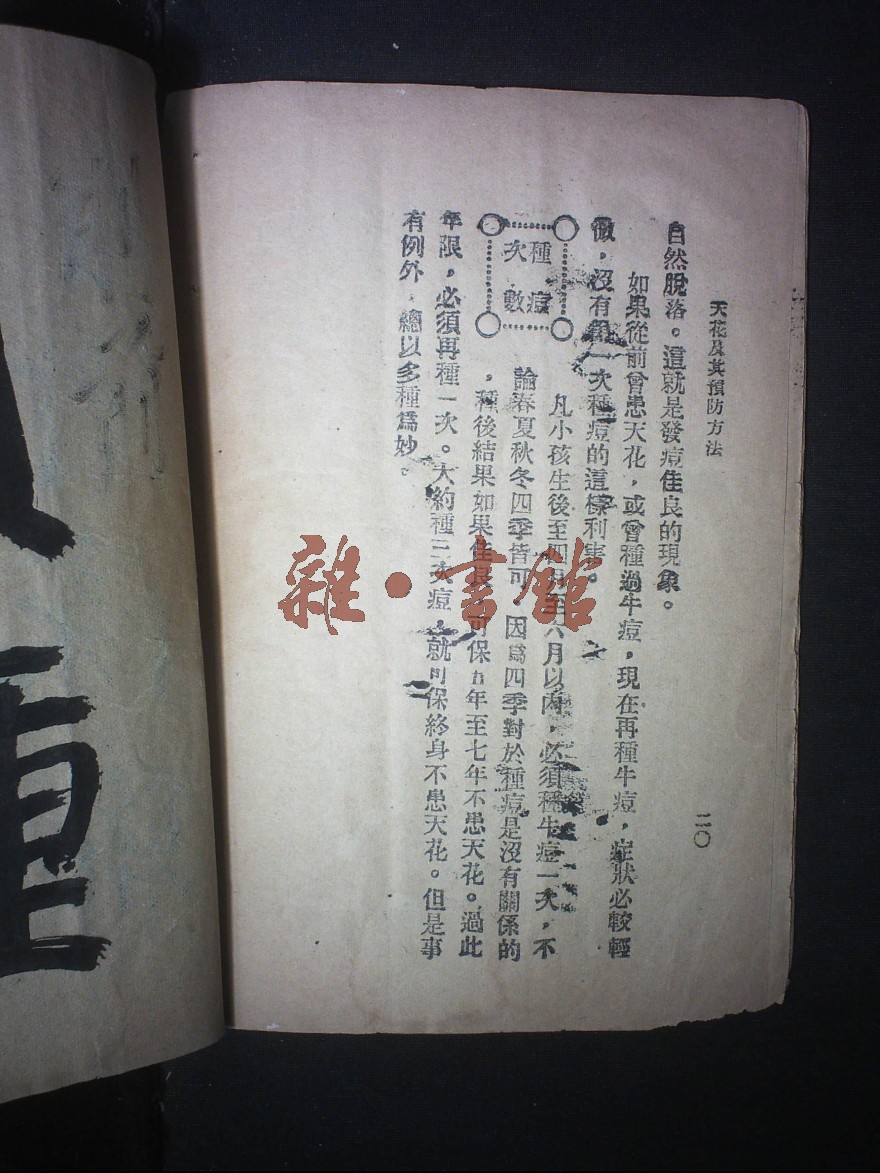 天花及其預防方法
二〇
自然脫落。這就是發痘佳良的現象。
如果從前曾患天花，或曾種過牛痘，現在再種牛痘，症狀必較輕
微，沒有第一次種痘的這樣利害。
種痘
次數
凡小孩生後至四月至六月以內，必須種牛痘一次，不
論春夏秋冬四季皆可，因爲四季對於種痘是沒有關係的
，種後結果如果佳良，可保五年至七年不患天花。過此
年限，必須再種一次。大約種三次痘，就可保終身不患天花。但是事
有例外，總以多種爲妙。
雜·書館
重